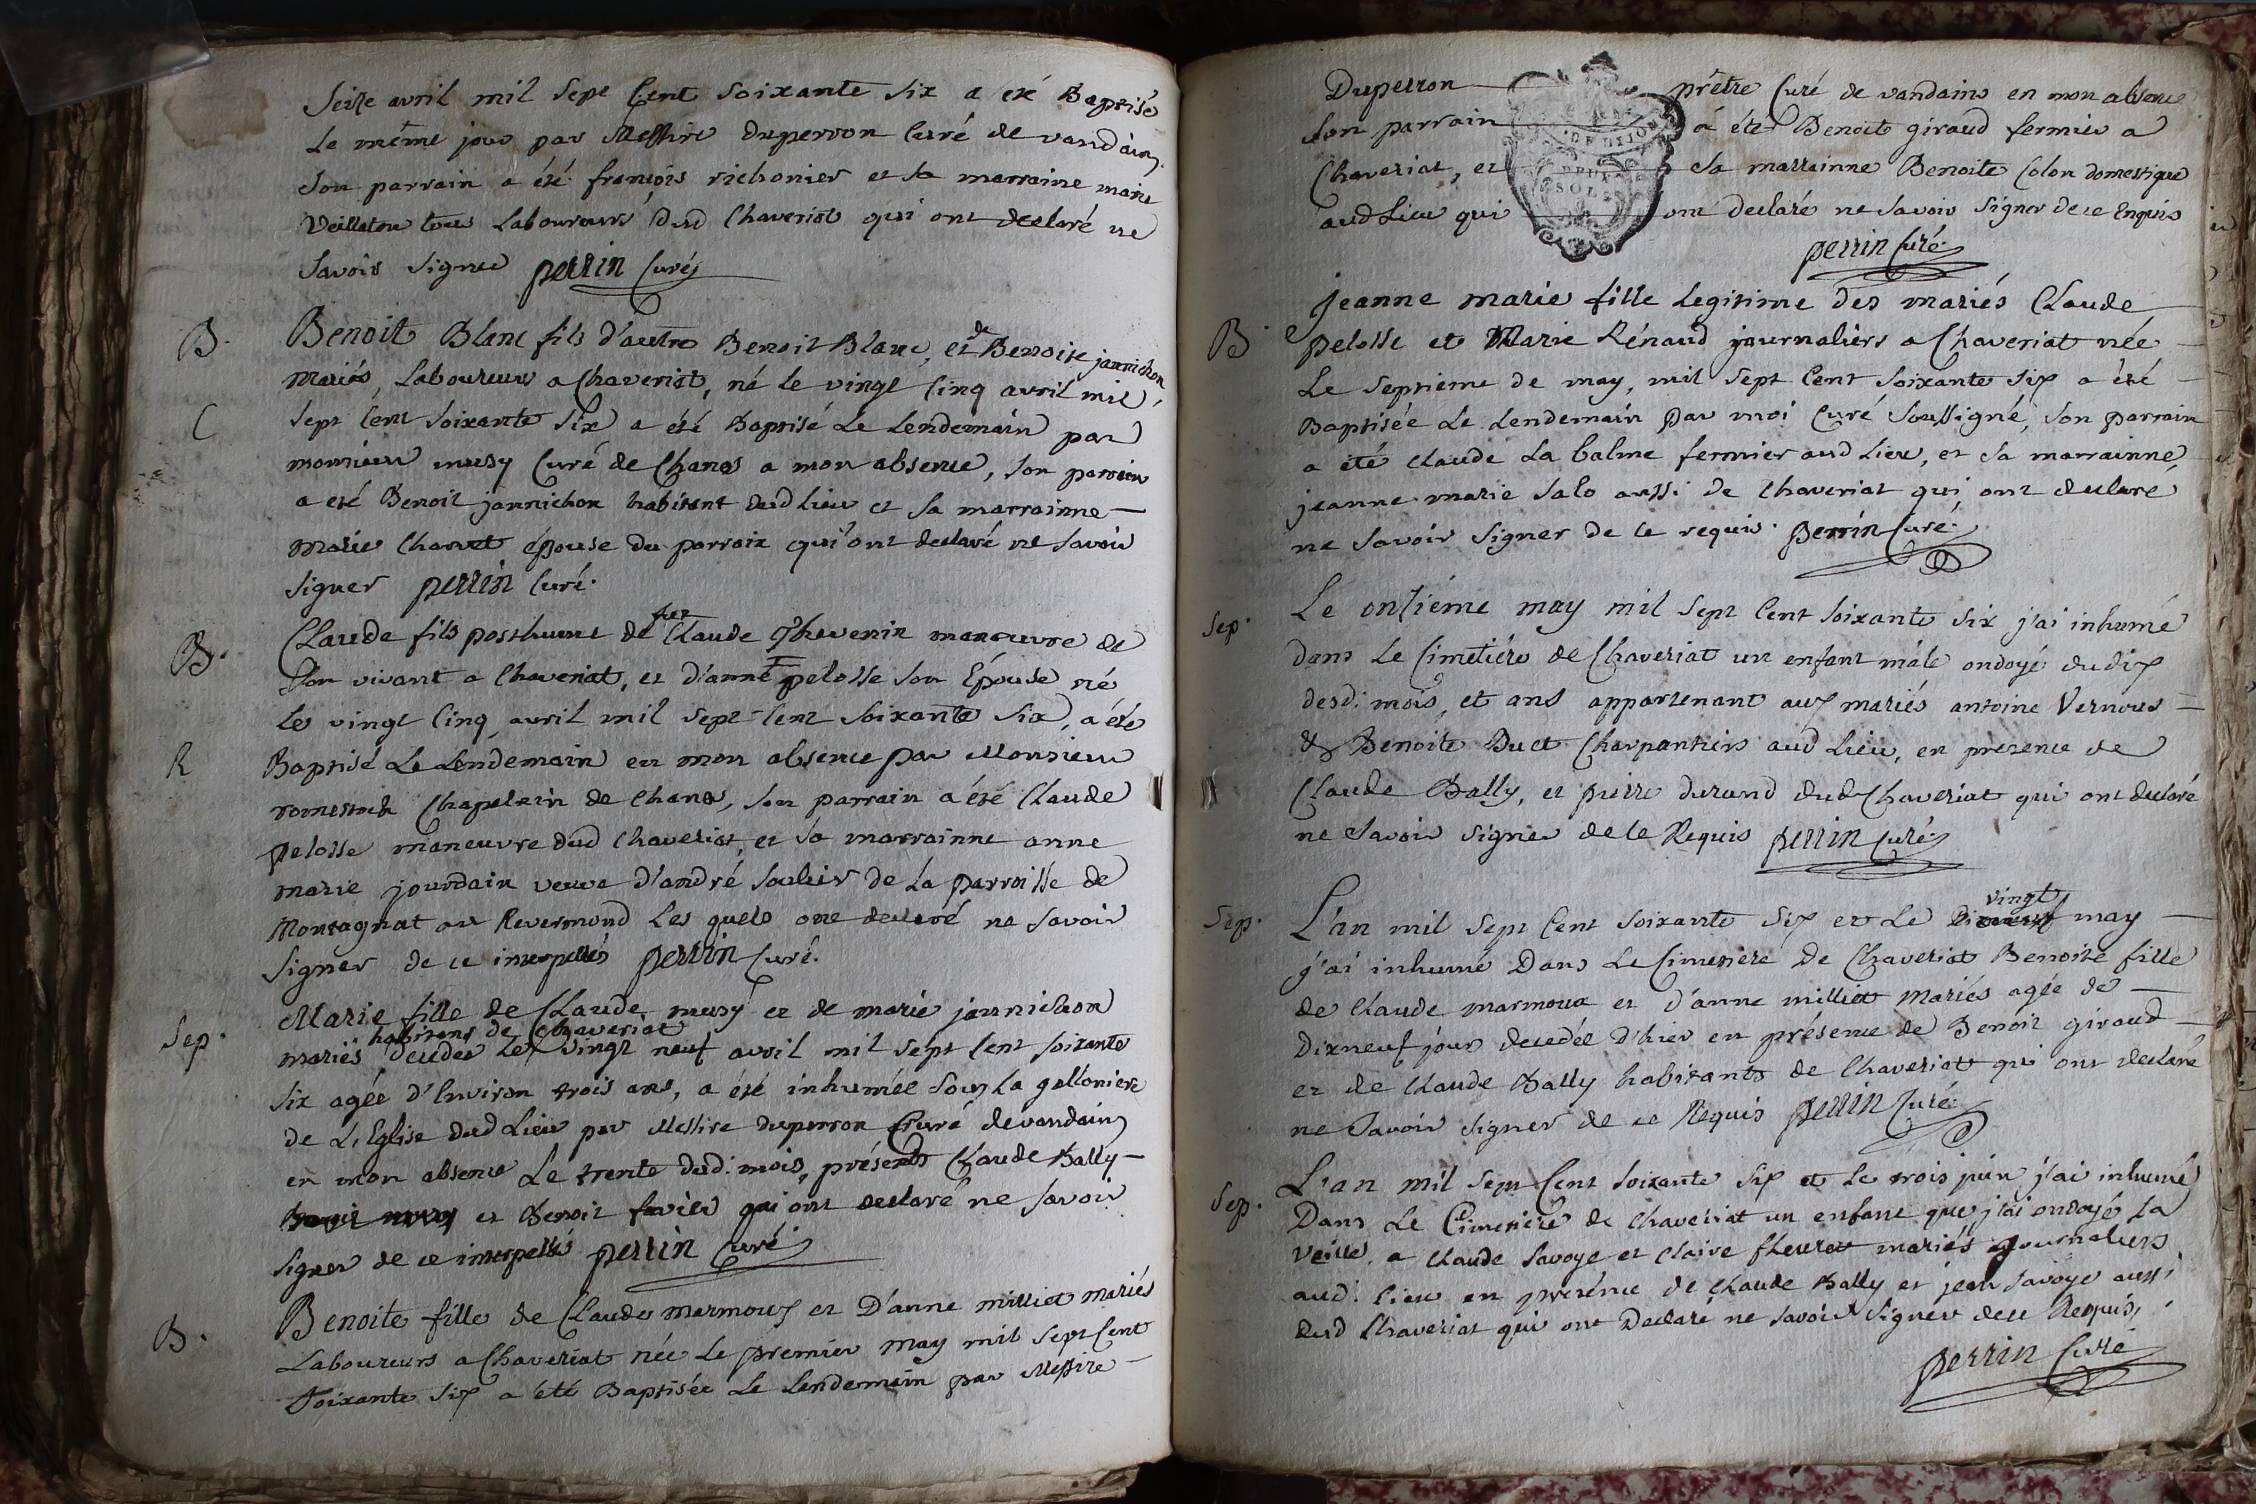 Seize avril mil sept Cent soixante six a eté Baptisé
Le même jour par Messire duperron Curé de vandains
Son parrain a été françois richonier et sa marraine marie
Veillaton tous Laboureurs dud Chaveriat qui ont declaré ne
Savoir signer perrin Curé
B. Benoit Blanc fils d'autre Benoit Blanc, et de Benoite jannichon
Mariés, Laboureurs a Chaveriat, né le vingt Cinq avril mil
C sept Cent soixante six a été Baptisé Le Lendemain par
monsieur musy Curé de Chanos a mon absence, son parrain
a eté Benoit jannichon habitant dud Lieu et sa marrainne
Marie Charvet épouse du parrain qui ont declaré ne savoir
signer perrin Curé.
B. Claude fils posthume de feu Claude Thevenin manœuvre de
son vivant a Chaveriat, et d'anne pelosse son Epouse né
Le vingt Cinq avril mil sept Cent soixante six, a été
R Baptisé Le Lendemain en mon absence par Monsieur
Chapelain de Chanos, son parrain a été Claude
pelosse maneuvre dud Chaveriat, et sa marrainne anne
marie jourdain veuve d'andré soulier de La parroisse de
Montagnat au Revermond Les quels ont declaré ne savoir
signer de ce interpellés perrin Curé.
Sep. Marie fille de Claude musy et de marie jannichon
mariés habitans de Chaveriat decedée Le vingt neuf avril mil sept Cent soixante
six agée d'Environ trois ans, a été inhumée sous La gallonière
de L'Eglise dud Lieu par Messire duperron Curé de vandains
en mon absence Le trente dud. mois, présents Claude Bally
et Benoit favier qui ont declaré ne savoir
signer de ce interpellés perrin Curé
B. Benoite fille de Claude marmoux et D'anne milliet mariés
Laboureurs a Chaveriat née Le premier may mil sept Cent
Soixante six a été Baptisée Le Lendemain par Messire
Duperron prêtre Curé de vandains en mon absence
son parrain a été Benoit giraud fermier a
Chaveriat, et sa marrainne Benoite Colon domestique
aud Lieu qui ont declaré ne savoir signer de ce Enquis
perrin Curé.
B. jeanne marie fille Legitime des mariés Claude
pelosse et Marie Rénaud journaliers a Chaveriat née
Le septieme de may, mil sept Cent soixante six a été
Baptisée Le Lendemain par moi Curé soussigné, son parrain
a été Claude La balme fermier aud Lieu, et sa marrainne
jeanne marie salo aussi de Chaveriat qui ont declaré
ne savoir signer de ce requis. perrin Curé.
Sep. Le onzième may mil sept Cent soixante six j'ai inhumé
dans Le Cimetiére de Chaveriat un enfant mâle ondoyé du dix
desd. mois, et ans appartenant aux mariés antoine Vernoux
& Benoite Buet Charpantiers aud Lieu, en presence de
Claude Bally, et pierre durand dud Chaveriat qui ont declaré
ne savoir signer de ce Requis perrin Curé
Sep. L'an mil sept Cent soixante six et Le vingt may
j'ai inhumé Dans Le Cimetière De Chaveriat Benoite fille
de Claude marmoux et d'anne milliet Mariés agée de
Dixneuf jours decedée d'hier en présence de Benoit giraud
et de Claude Bally habitants de Chaveriat qui ont declaré
ne savoir signer de ce Requis perrin Curé.
Sep. L'an mil sept Cent soixante six et Le trois juin j'ai inhumé
Dans Le Cimetière de Chaveriat un enfant que j'ai ondoyé La
Veille, a Claude savoye et Claire fleuret mariés journaliers
aud. Lieu en presence de Claude Bally et jean savoye aussi
dud Chaveriat qui ont Declaré ne savoir signer de ce Requis,
perrin Curé